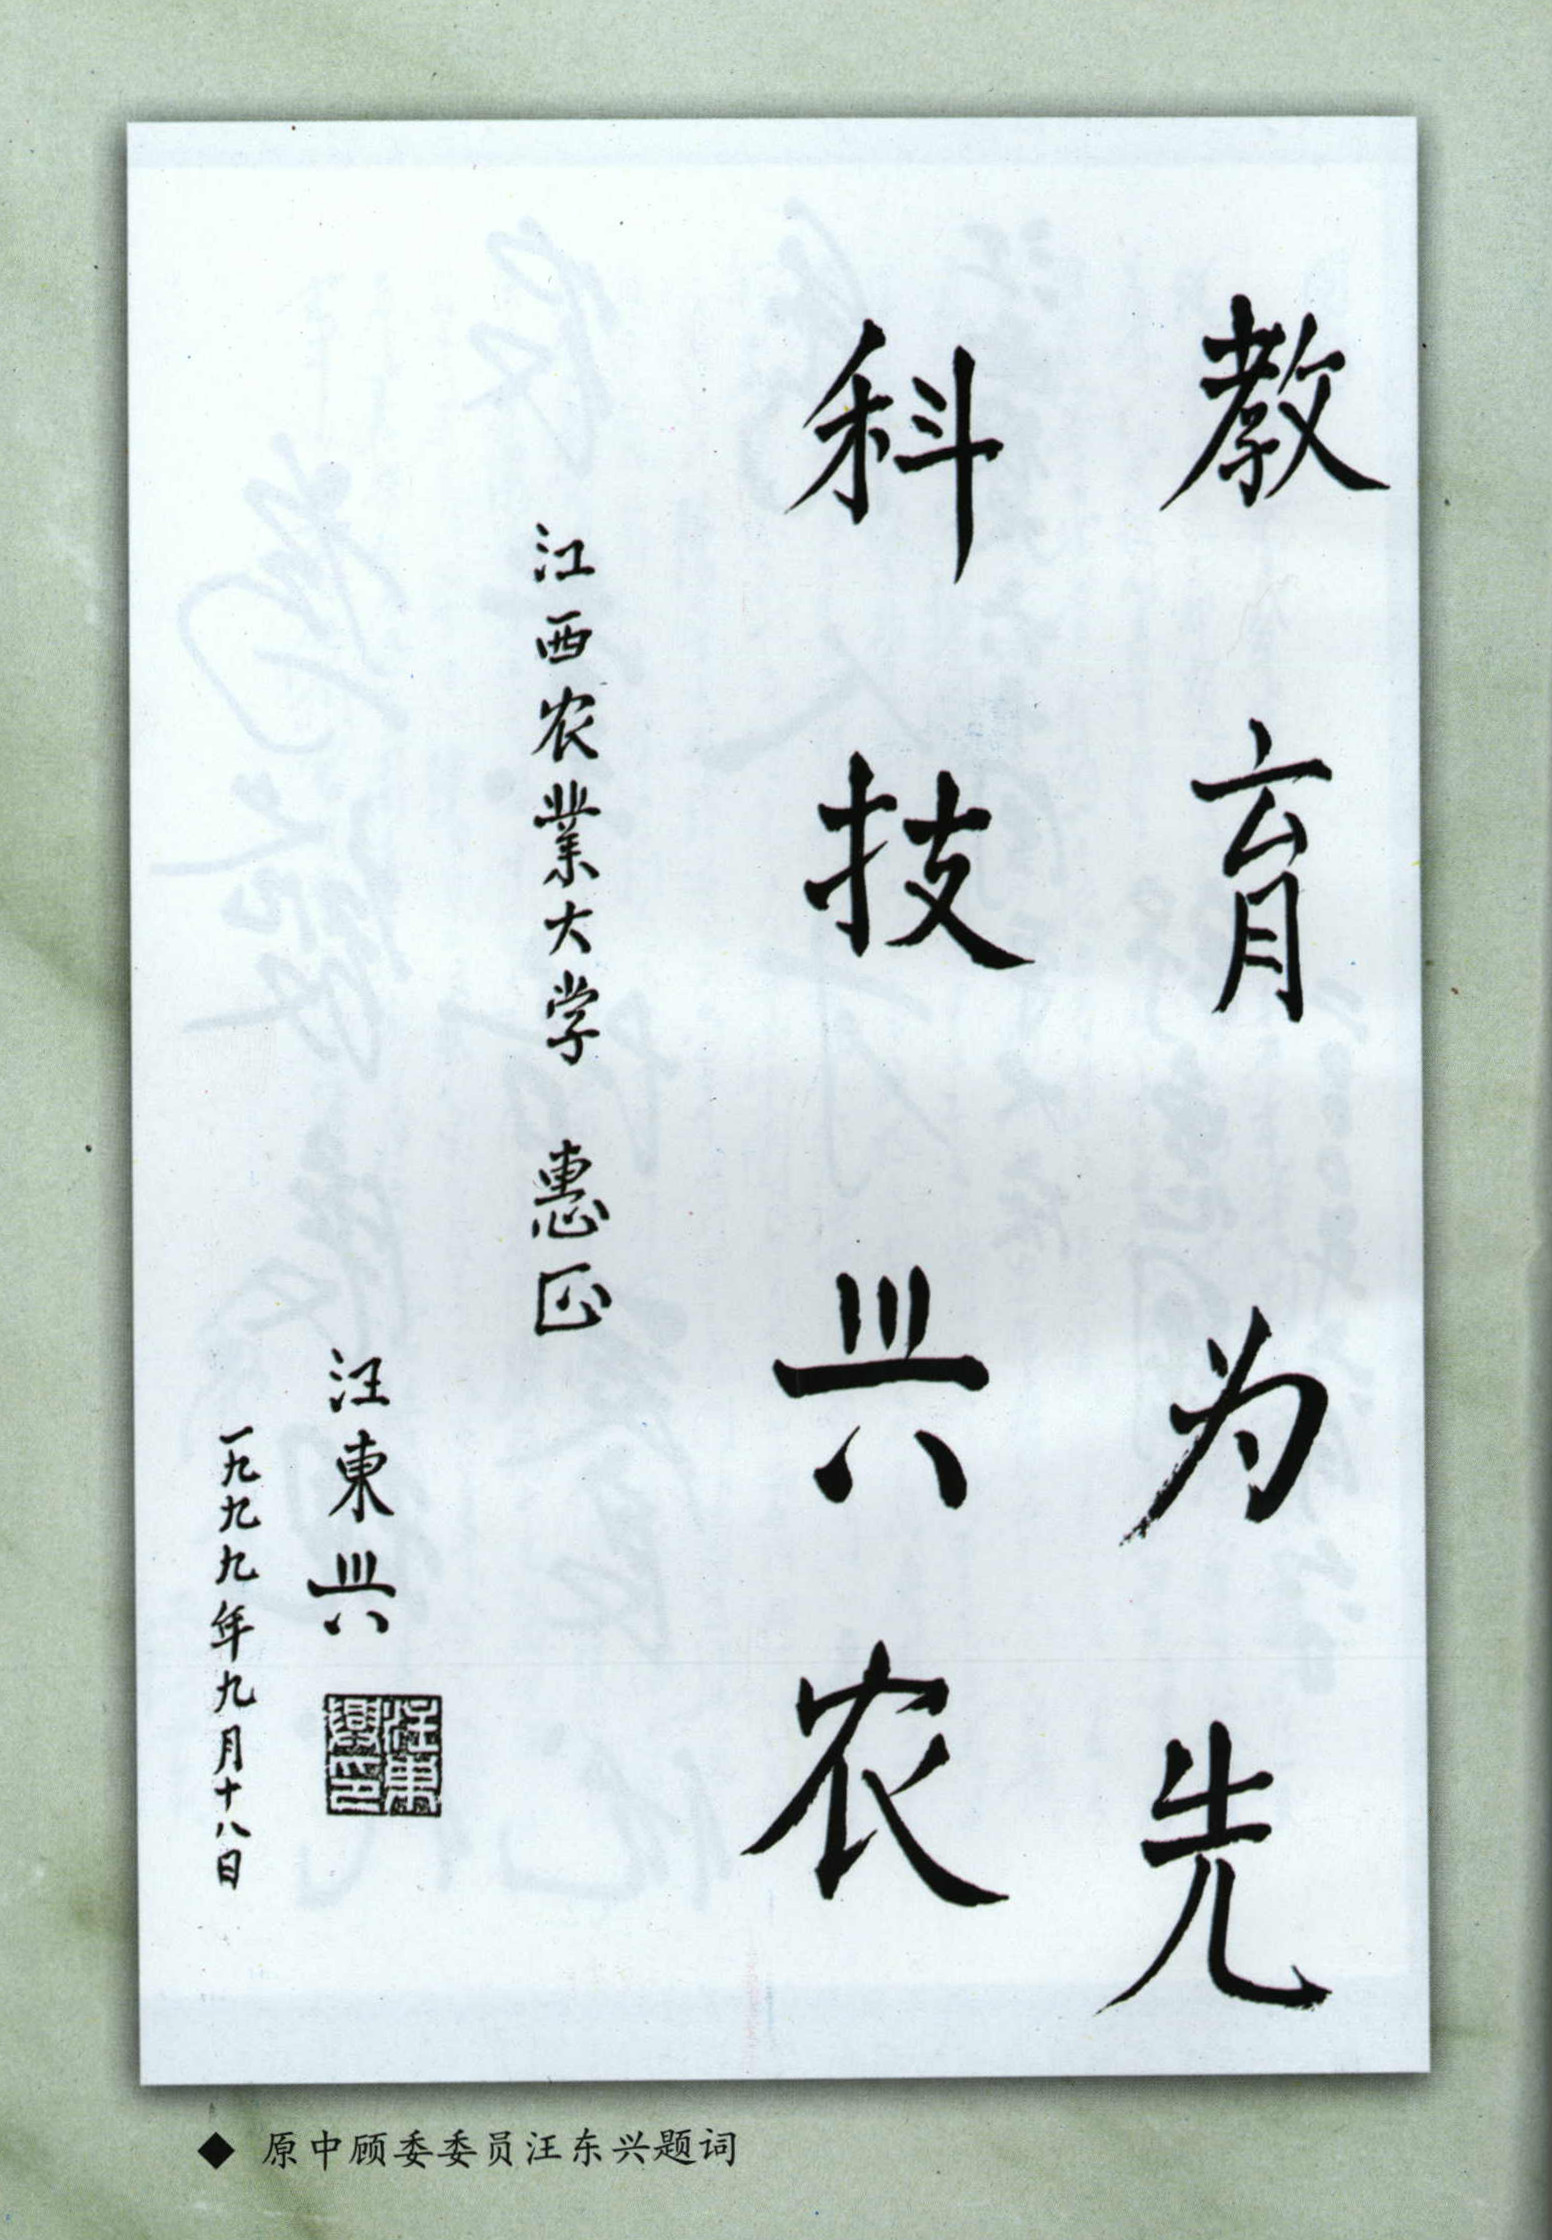 教育为先
科技兴农
江西农業大学 惠正
汪東兴
汪東興印
一九九九年九月十八日
◆ 原中顾委委员汪东兴题词